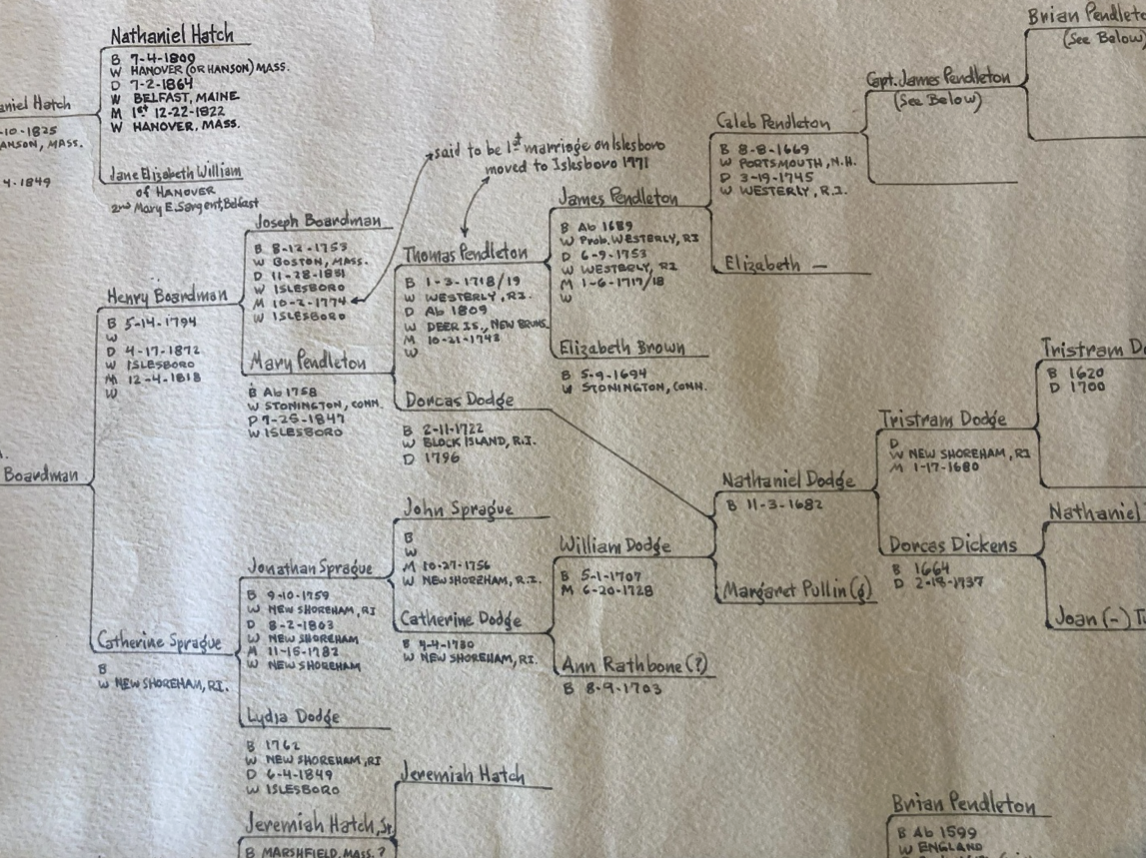 Nathaniel Hatch
B 7-4-1809
W HANOVER (OR HANSON) MASS.
D 7-2-1864
W BELFAST, MAINE
M 1st 12-22-1822
W HANOVER, MASS.
aniel Hatch
-10-1825
ANSON, MASS.
4-1849
Jane Elizabeth William
of HANOVER
2nd Mary E. Sargent, Belfast
said to be 1st marriage on Islesboro
moved to Islesboro 1771
Joseph Boardman
B 8-12-1753
W BOSTON, MASS.
D 11-28-1851
W ISLESBORO
M 10-2-1774
W ISLESBORO
Henry Boardman
B 5-14-1794
W
D 4-17-1872
W ISLESBORO
M 12-4-1818
W
Mary Pendleton
B Ab 1758
W STONINGTON, CONN.
D 7-25-1847
W ISLESBORO
Boardman
Catherine Sprague
B
W NEW SHOREHAM, RI.
Jonathan Sprague
B 9-10-1759
W NEW SHOREHAM, RI
D 8-2-1803
W NEW SHOREHAM
M 11-15-1782
W NEW SHOREHAM
Lydia Dodge
B 1762
W NEW SHOREHAM, RI
D 6-4-1849
W ISLESBORO
Jeremiah Hatch, Sr.
B MARSHFIELD, MASS. ?
Thomas Pendleton
B 1-3-1718/19
W WESTERLY, R.I.
D Ab 1809
W DEER IS., NEW BRUNS.
M 10-21-1742
W
Dorcas Dodge
B 2-11-1722
W BLOCK ISLAND, R.I.
D 1796
John Sprague
B
W
M 10-27-1756
W NEW SHOREHAM, R.I.
Catherine Dodge
B 4-4-1730
W NEW SHOREHAM, RI.
Jeremiah Hatch
James Pendleton
B Ab 1689
W Prob. WESTERLY, RI
D 6-9-1753
W WESTERLY, RI
M 1-6-1717/18
W
Elizabeth Brown
B 5-9-1694
W STONINGTON, CONN.
William Dodge
B 5-1-1707
M 6-20-1728
Ann Rathbone (?)
B 8-9-1703
Caleb Pendleton
B 8-8-1669
W PORTSMOUTH, N.H.
D 3-19-1745
W WESTERLY, R.I.
Elizabeth —
Nathaniel Dodge
B 11-3-1682
Margaret Pullin (g)
Capt. James Pendleton
(See Below)
Brian Pendleto
(See Below)
Tristram Dodge
D
W NEW SHOREHAM, RI
M 1-17-1680
Dorcas Dickens
B 1664
D 2-18-1737
Tristram Do
B 1620
D 1700
Nathaniel
Joan (-) T
Brian Pendleton
B Ab 1599
W ENGLAND